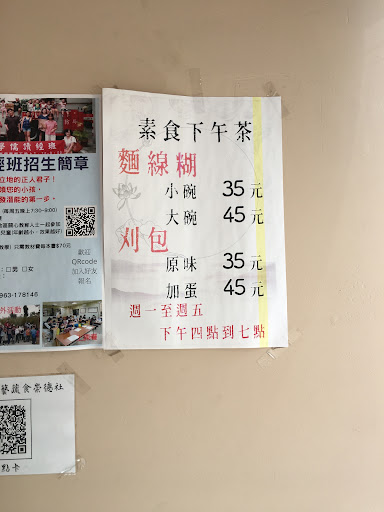 素食下午茶
麵線糊
小碗 35元
大碗 45元
刈包
原味 35元
加蛋 45元
週一至週五
下午四點到七點
學儒讀經班
經班招生簡章
立地的正人君子！
您的小孩，
發潛能的第一步。
歡迎
QRcode
加入好友
報名
□男 □女
0963-178146
藝蔬食崇德社
點卡